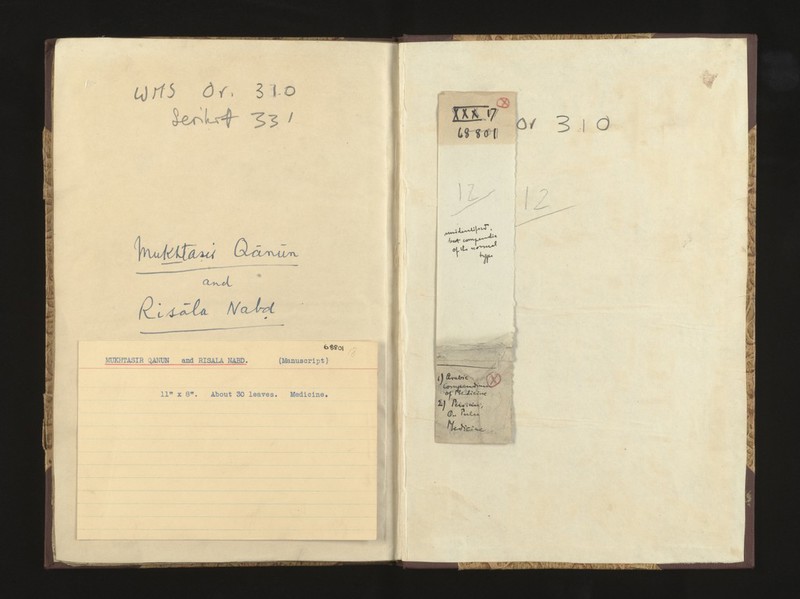 WMS Or. 310
331
Mukhtasir Qānūn
and
Risāla Nabḍ
68801
MUKHTASIR QANUN and RISALA NABD. (Manuscript)
11" x 8". About 30 leaves. Medicine.
XXX 17
68801
12
unidentified,
but compendia
of the normal
type
1) Arabic
Compendium
of Medicine
2) Persian.
On Pulse
Medicine
Or 310
12